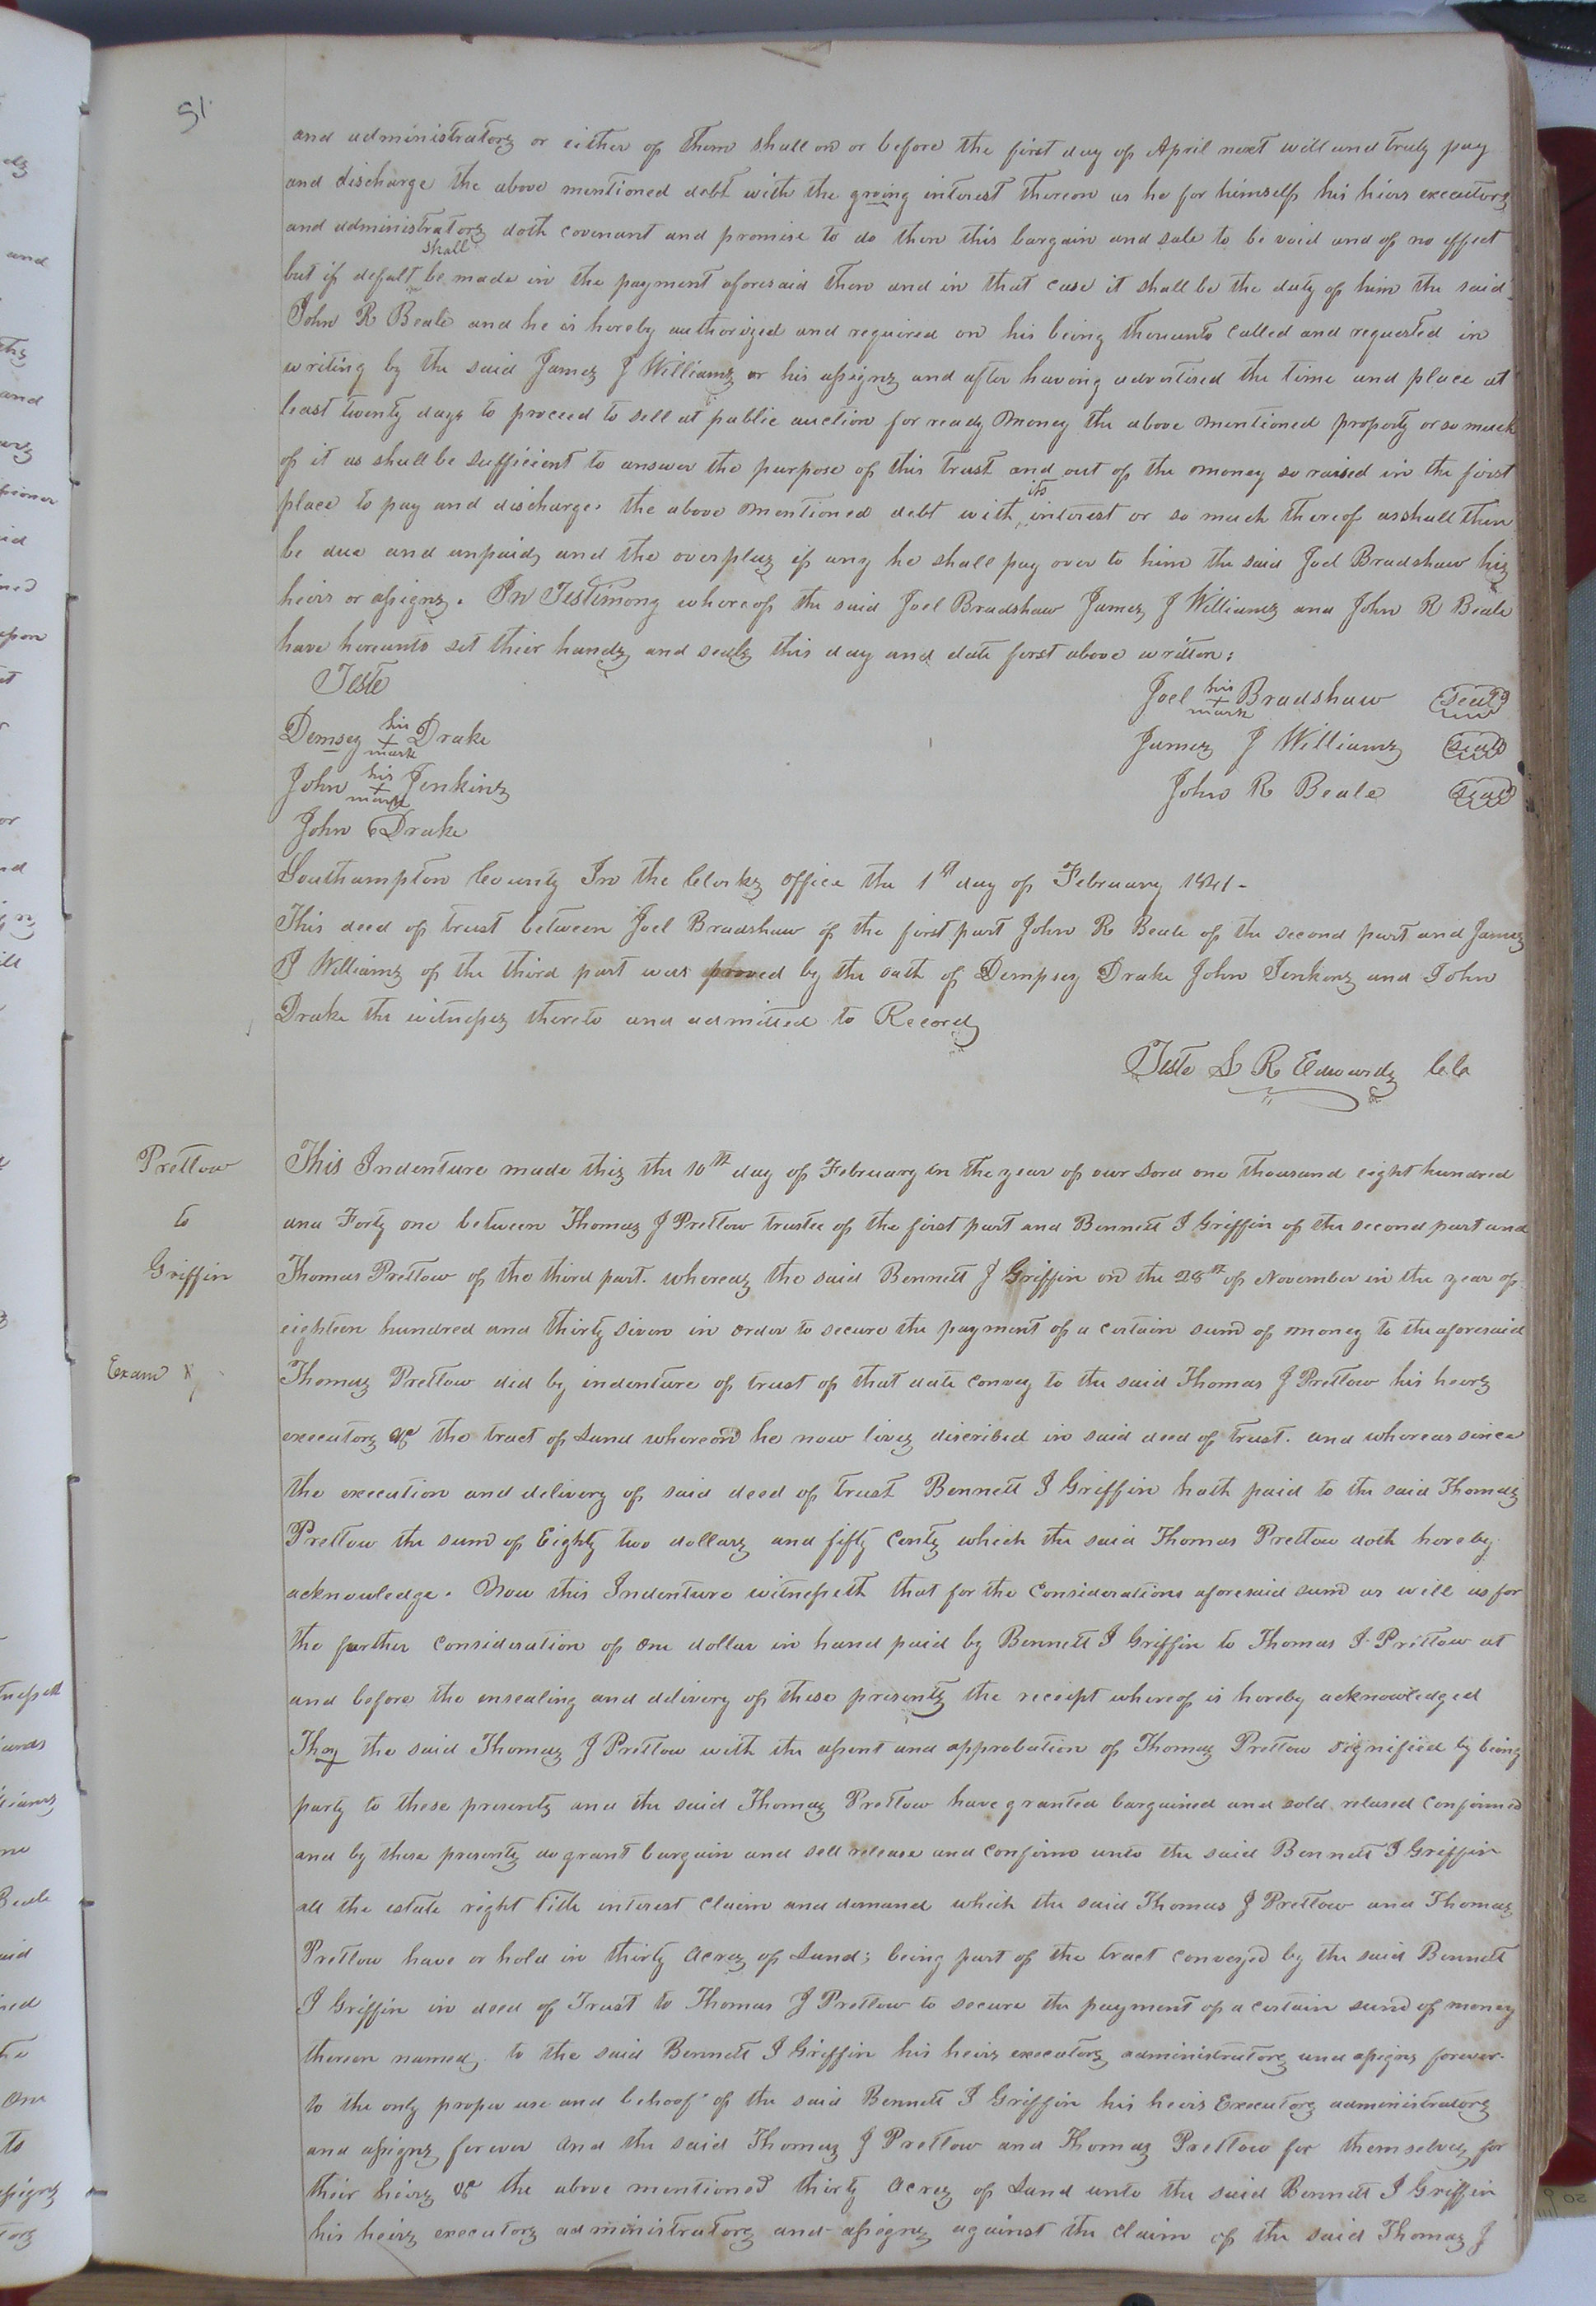 51
and administrators or either of them shall on or before the first day of April next will and truly pay
and discharge the above mentioned debt with the groing interest thereon as he for himself his hiers executors
and administrators doth covenant and promise to do then this bargain and sale to be void and of no effect
but if defalt shall be made in the payment aforesaid then and in that case it shall be the duty of him the said
John R Beale and he is hereby authorized and required on his being thereunto called and requested in
writing by the said James J Williams or his assigns and after having advertised the time and place at
least twenty days to proceed to sell at public auction for ready money the above mentioned property or so much
of it as shall be sufficient to answer the purpose of this trust and out of the money so raised in the first
place to pay and discharge the above mentioned debt with its interest or so much thereof as shall then
be due and unpaid, and the overplus if any he shall pay over to him the said Joel Bradshaw his
heirs or assigns. In Testimony whereof the said Joel Bradshaw James J Williams and John R Beale
have hereunto set their hands and seals this day and date first above written:
Teste
Joel his + mark Bradshaw seal
Demsey his + mark Drake
James J Williams seal
John his + mark Jenkins
John R Beale seal
John Drake
Southampton County In the Clerks office the 1st day of February 1841-
This deed of trust between Joel Bradshaw of the first part John R Beale of the second part and James
J Williams of the third part was proved by the oath of Dempsey Drake John Jenkins and John
Drake the witnesses thereto and admitted to Record
Teste L R Edwards CC
Pretlow
to
Griffin
Exam d
This Indenture made this the 10th day of February in the year of our Lord one thousand eight hundred
and Forty one between Thomas J Pretlow trustee of the first part and Bennett J Griffin of the second part and
Thomas Pretlow of the third part. whereas the said Bennett J Griffin on the 28th of November in the year of
eighteen hundred and thirty seven in order to secure the payment of a certain sum of money to the aforesaid
Thomas Pretlow did by indenture of trust of that date convey to the said Thomas J Pretlow his heirs
executors &c the tract of Land whereon he now lives discribed in said deed of trust. and whereas since
the execution and delivery of said deed of trust Bennett J Griffin hath paid to the said Thomas
Pretlow the sum of Eighty two dollars and fifty Cents which the said Thomas Pretlow doth hereby
acknowledge. Now this Indenture witnesseth that for the Considerations aforesaid sum as well as for
the further consideration of one dollar in hand paid by Bennett J Griffin to Thomas J Pretlow at
and before the ensealing and delivery of these presents the receipt whereof is hereby acknowledged
They the said Thomas J Pretlow with the assent and approbation of Thomas Pretlow signified by being
party to these presents and the said Thomas Pretlow have granted bargained and sold relased confirmed
and by these presents do grant bargain and sell release and confirm unto the said Bennett J Griffin
all the estate right title interest claim and demand which the said Thomas J Pretlow and Thomas
Pretlow have or hold in thirty acres of Land; being part of the tract conveyed by the said Bennett
J Griffin in deed of Trust to Thomas J Pretlow to secure the payment of a certain sum of money
thereon named, to the said Bennett J Griffin his heirs executors administrators and assigns forever.
to the only proper use and behoof of the said Bennett J Griffin his heirs Executors administrators
and assigns forever and the said Thomas J Pretlow and Thomas Pretlow for themselves for
their heirs &c the above mentioned thirty acres of Land unto the said Bennett J Griffin
his heirs executors administrators and assigns against the claim of the said Thomas J